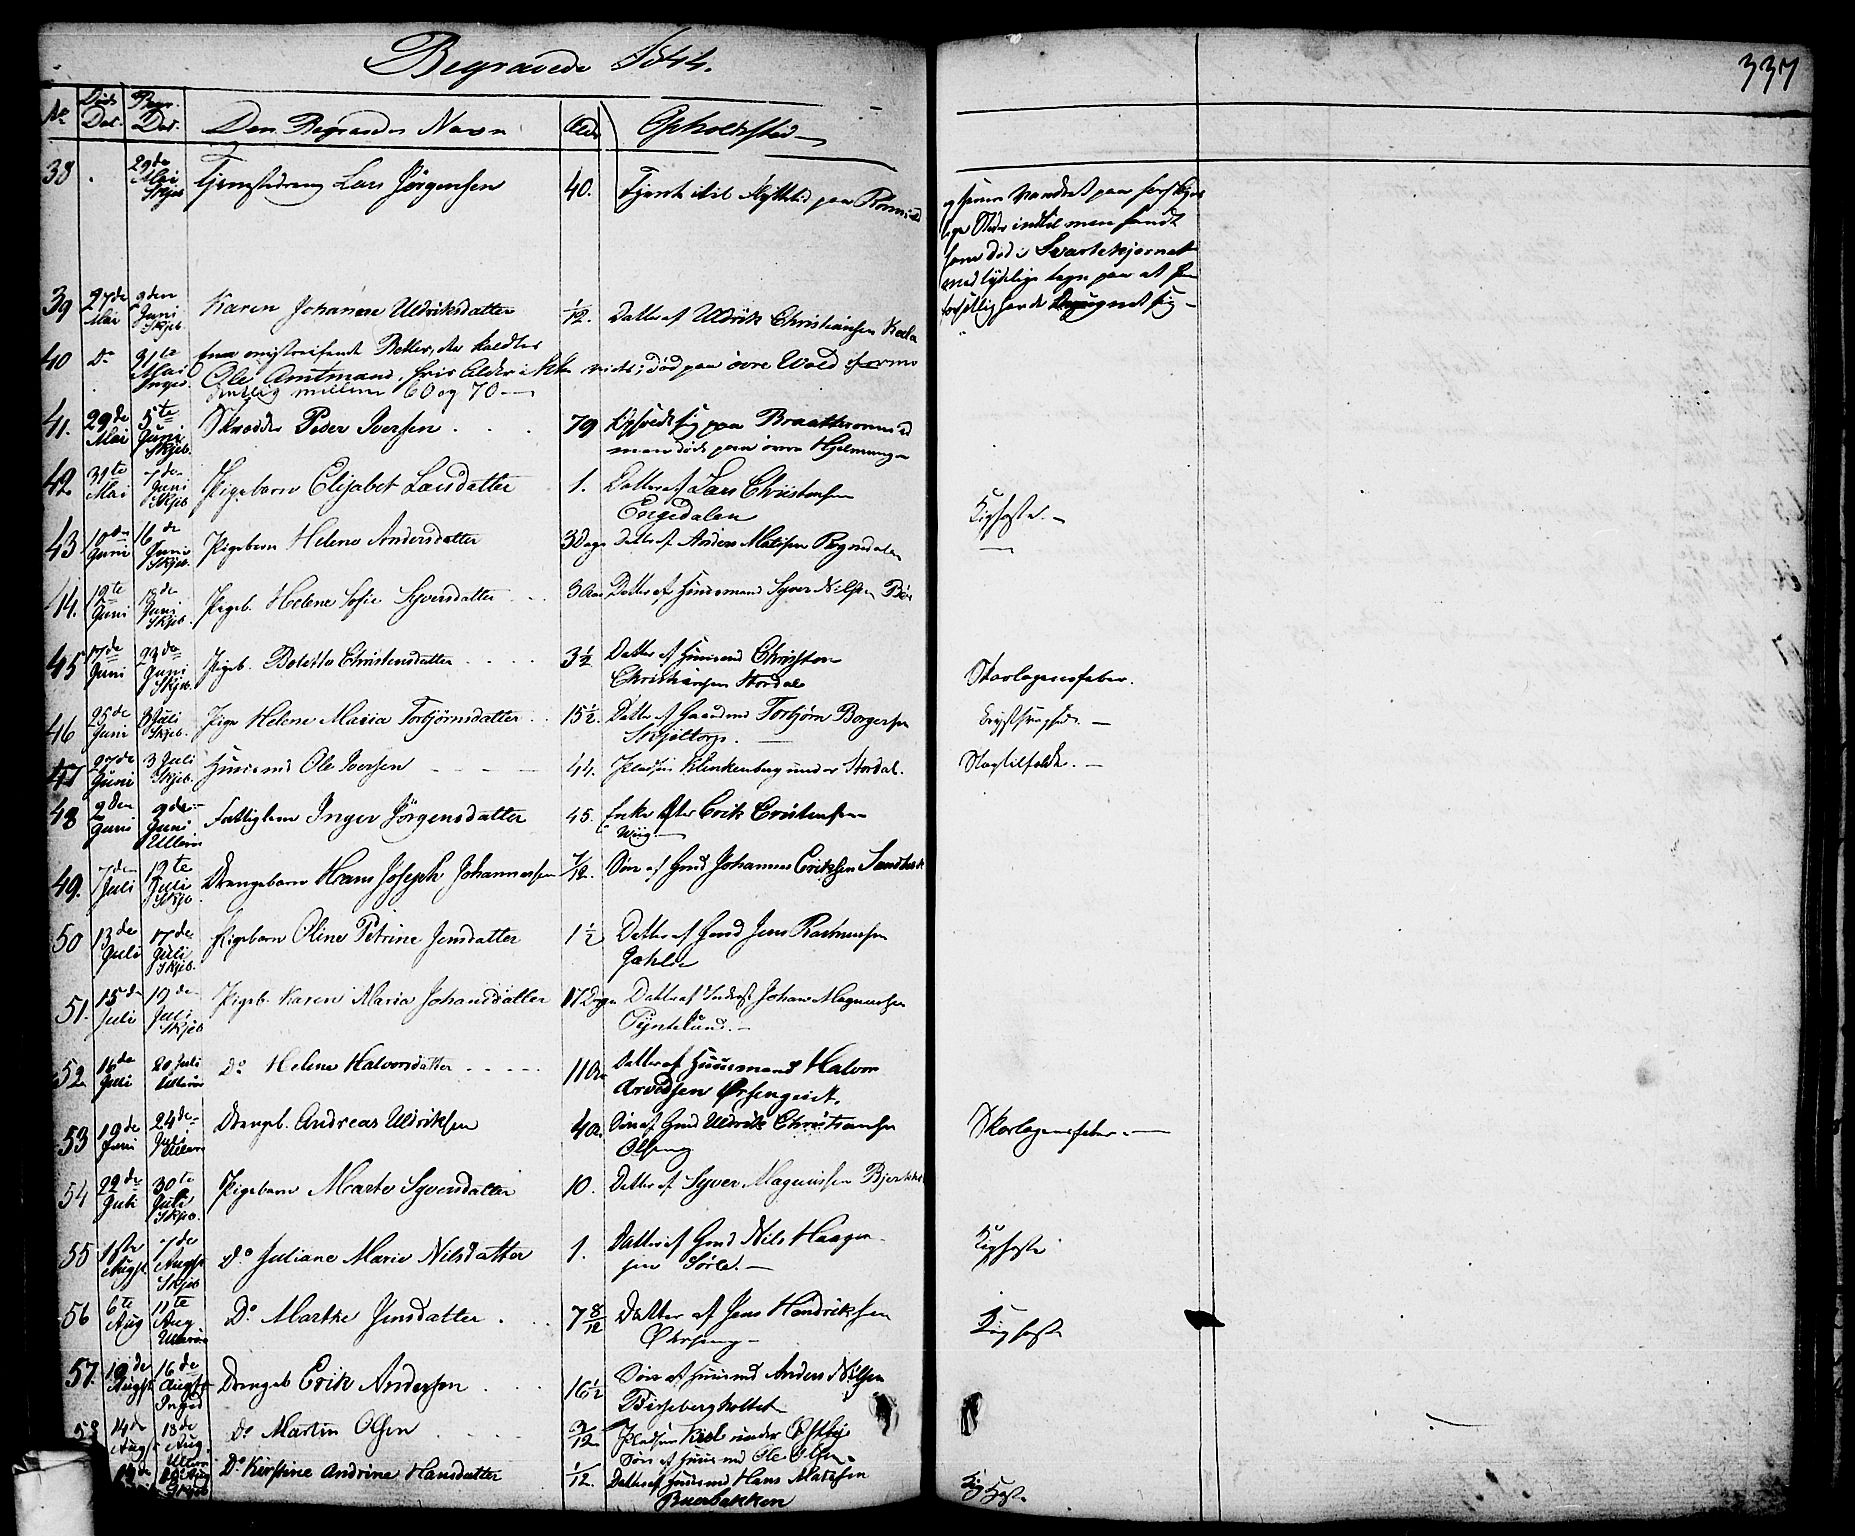 Begravede 1844.
337
No Døds Dat. Begr. Dat. Den Begravedes Navn Alder Opholdsted
38 29de Mai Skjeb. Tjenestedreng Lars Jørgensen 40.
og siden vandret paa forskjel
lige Steder indtil man fandt
ham død i Svartekjernet
med tydelige tegn paa at han
forsætlig havde druknet sig
39 27de Mai 9den Juni Skjeb. Karen Johanne Uldriksdatter 1/12. Datter af Uldrik Christiansen
40 Do 31te Mai Inged. En omstreifende Betler, der kaldtes
Ole Amtmand, hvis Alder ikke vides; død paa øvre Wold formo
dentlig mellem 60 og 70
41. 29de Mai 5te Juni Skjeb. Skrædder Peder Iversen 79 Opholdt sig paa
men døde paa øvre Hjelmung
42 31te Mai 7de Juni Skjeb. Pigebarn Elisabet Larsdatter 1. Datter af Lars Christensen
Engedalen Kighoste.
43 10de Juni 16de Juni Skjeb. Pigebarn Helene Andersdatter 3 Dage Datter af Anders Matisen
44. 12te Juni 18de Juni Skjeb. Pigeb. Helene Sofie Syversdatter 3 Aar Datter af Huusmand Syver Nilsen Bøe
45 17de Juni 23de Juni Skjeb. Pigeb. Bolette Christensdatter 3 1/2 Datter af Huusmd Christen
Christiansen Stordal Skarlagensfeber.
46 25de Juni 3 Juli Skjeb. Pige Helene Maria Torbjørnsdatter 15 1/2. Datter af Gaardmd Torbjørn Borgersen
Skjeltorp. Brystsvaghed.
47 27de Juni 3 Juli Skjeb. Huusmd Ole Iversen 44. Pladsen Klinkenberg under Stordal. Slagtilfælde.
48 2den Juni 9de Juni Ullerøi Fattiglem Inger Jørgensdatter 45. Enke efter Erik Cristensen
Wiig.
49. 7de Juli 12te Juli Skjeb. Drengebarn Hans Joseph Johannessen 7/12. Søn af Grmd Johannes Eriksen Sandbæk
50 13de Juli 17de Juli Skjeb. Pigebarn Oline Petrine Jensdatter 1 1/2 Datter af Grmd Jens Rasmussen
Jahlin
51. 15de Juli 19de Juli Skjeb Pigeb. Karen Maria Johansdatter 17 Dage Datter af Inderst Johan Magnussen
Pyntelund.
52 16de Juli 20 Juli Ullerøi Do Helene Halvorsdatter 11 Aar Datter af Huusmand Halvor
Arvedsen Ørsengeiet.
53 19de Juni 24de Juli Ullerøi Drengeb. Andreas Uldriksen 4 a. Søn af Grmd Uldrik Christiansen
Olseng Skarlagensfeber.
54 22de Juli 30te Juli Skjeb. Pigebarn Marte Syversdatter 10. Datter af Syver Magnussen
55 1ste Augst. 7de Augst Skjeb Do Juliane Marie Nilsdatter 1. Datter af Grmd Nils Haagen
sen Sørli. Kighoste
56 6te Aug 11te Aug Ullerøi Do. Marthe Jensdatter 7 8/12 Datter af Jens Hendriksen
Ørseng Kighoste
57. 10de Augst 16de Augst Inged Drengeb Erik Andersen 16 1/2 Søn af Huusmd Anders Nilsen
Birkebergholtet
58 14de Augst 18de Aug. Ullerøi Do Martin Olsen 3/12 Pladsen Kisel under Østbye
Søn af Huusmd Ole Olsen
Do Kirstine Andrine Hansdatter 1/12. Datter af Huusmd Hans Madsen
Buerbakken Kighoste